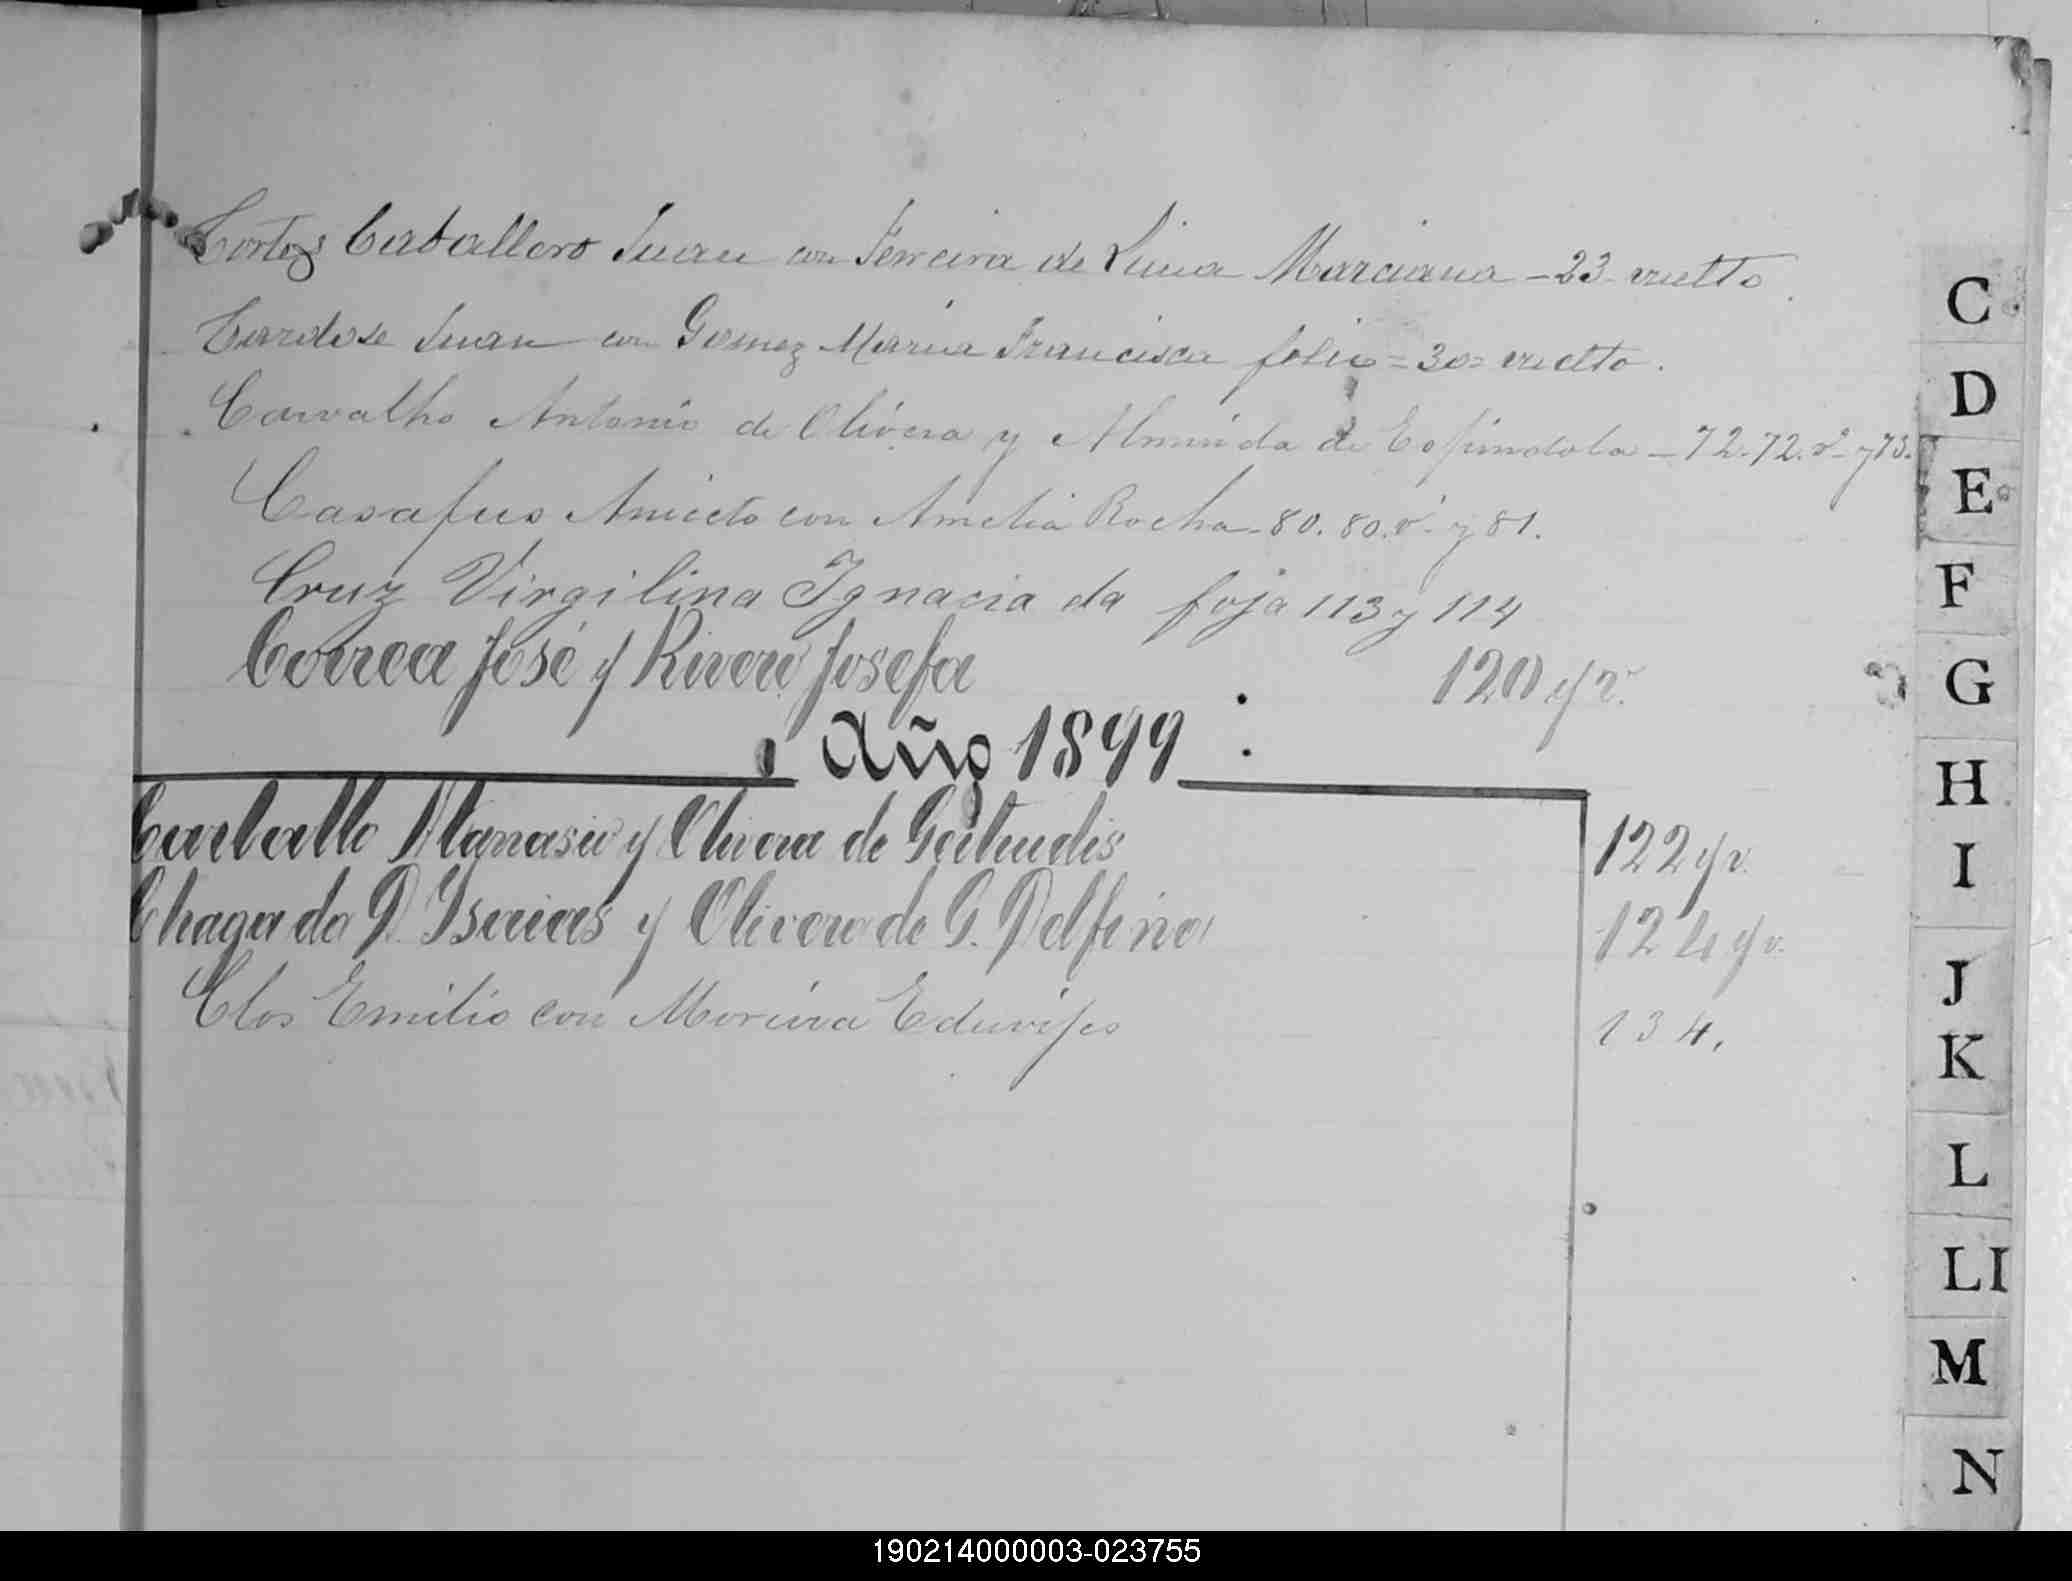 Cortes Caballero Juan con Ferreira de Lima Marciana - 23 vuelto.
Cardose Juan con Gomez Maria Francisca folio = 30 = vuelto.
Carvalho Antonio de Olivera y Almirida de Espindola - 72. 72. vº y 73.
Casafus Aniceto con Amelia Rocha - 80. 80. vº y 81.
Cruz Virgilina Ignacia da foja 113 y 114
Correa José y Rivero Josefa 120 y v.
Año 1899
Carballo Atanasio y Olivera de Gertrudis 122 y v.
Chaga da D. Isaias y Olivera de G. Delfina 124 y v.
Clos Emilio con Moreira Eduvijes 134.
C
D
E
F
G
H
I
J
K
L
Ll
M
N
190214000003-023755